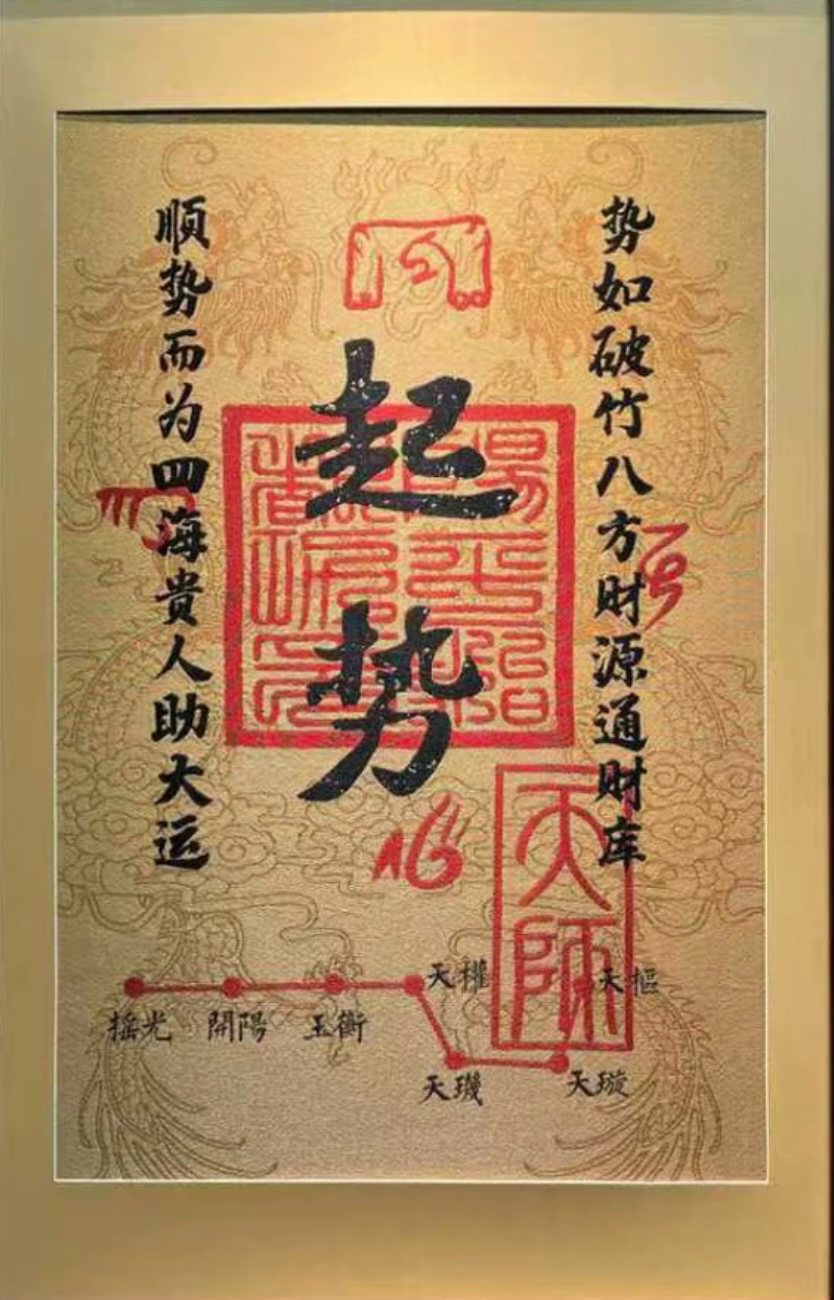 势如破竹八方财源通财库
起势
顺势而为四海貴人助大运
陽平治都功印
天師
天權
天樞
摇光
開陽
玉衡
天璣
天璇